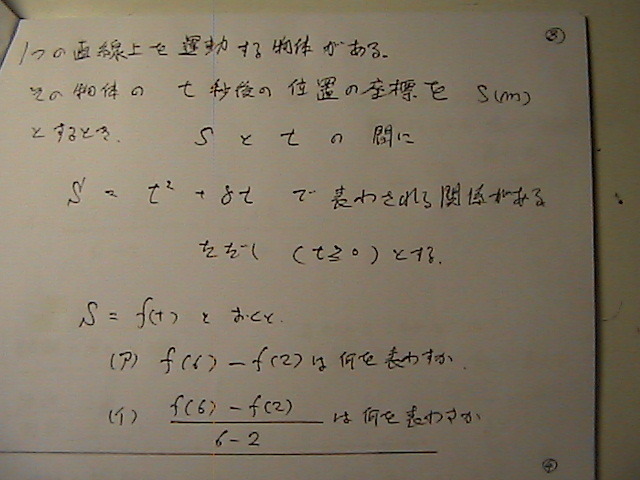 1つの直線上を運動する物体がある。
③
その物体の t秒後の位置の座標を S(m)
とするとき、 S と t の間に
S = t² + 8t で表わされる関係がある
ただし (t≧0) とする。
S = f(t) とおくと、
(ア) f(6) − f(2) は何を表わすか。
(イ) f(6) − f(2) / 6 − 2 は何を表わすか